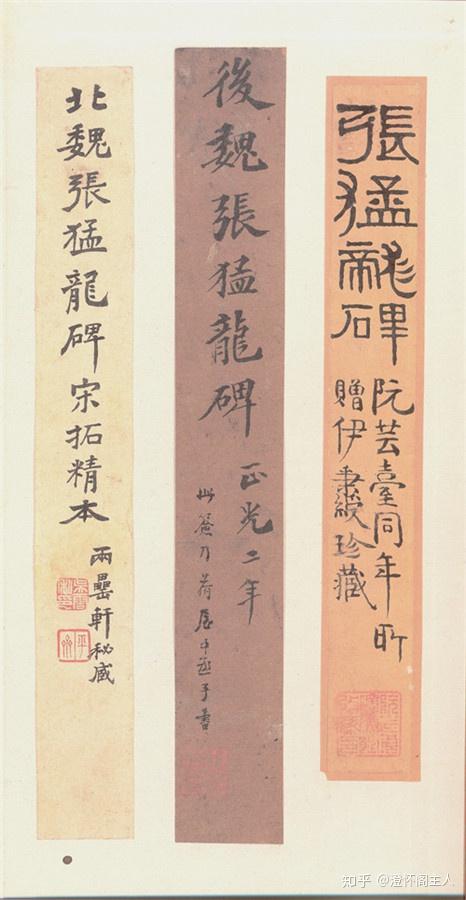 張猛龍碑
阮芸臺同年所
贈伊秉綬珍藏
後魏張猛龍碑
正光二年
此簽乃荷屋中丞手書
北魏張猛龍碑宋拓精本
兩罍軒秘臧
知乎 @澄怀阁主人